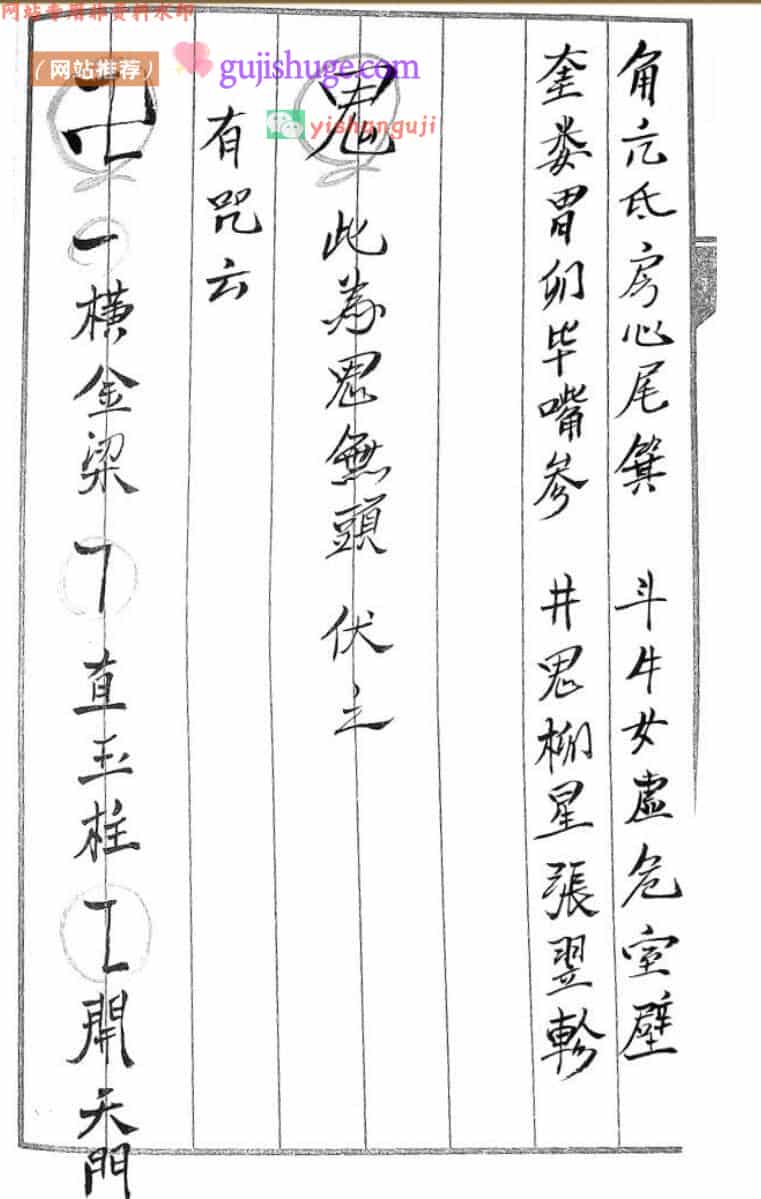 网站专用非资料水印
（网站推荐）
gujishuge.com
yishanguji
角亢氐房心尾箕　斗牛女虚危室壁
奎娄胃卯毕嘴参　井鬼柳星張翌軫
鬼　此為鬼無頭　伏之
有咒云
卍　一橫金梁　㇕直玉柱　開天門